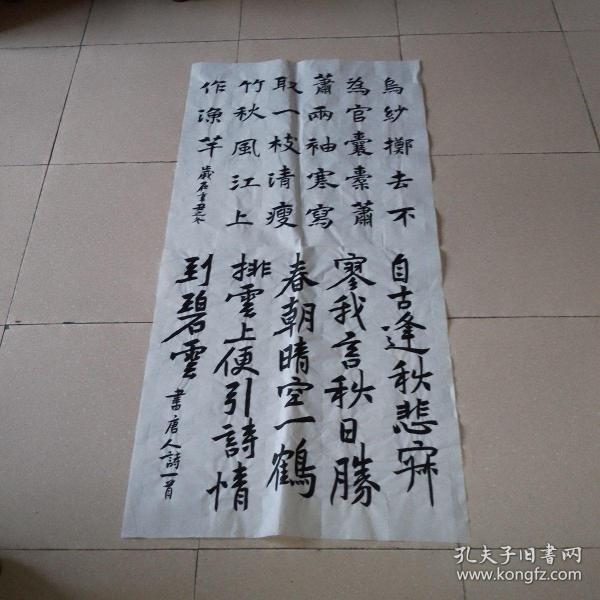 烏紗擲去不
為官囊橐蕭
蕭兩袖寒寫
取一枝清瘦
竹秋風江上
作漁竿
自古逢秋悲寂
寥我言秋日勝
春朝晴空一鶴
排雲上便引詩情
到碧雲
書唐人詩一首
孔夫子旧書网
www.kongfz.com